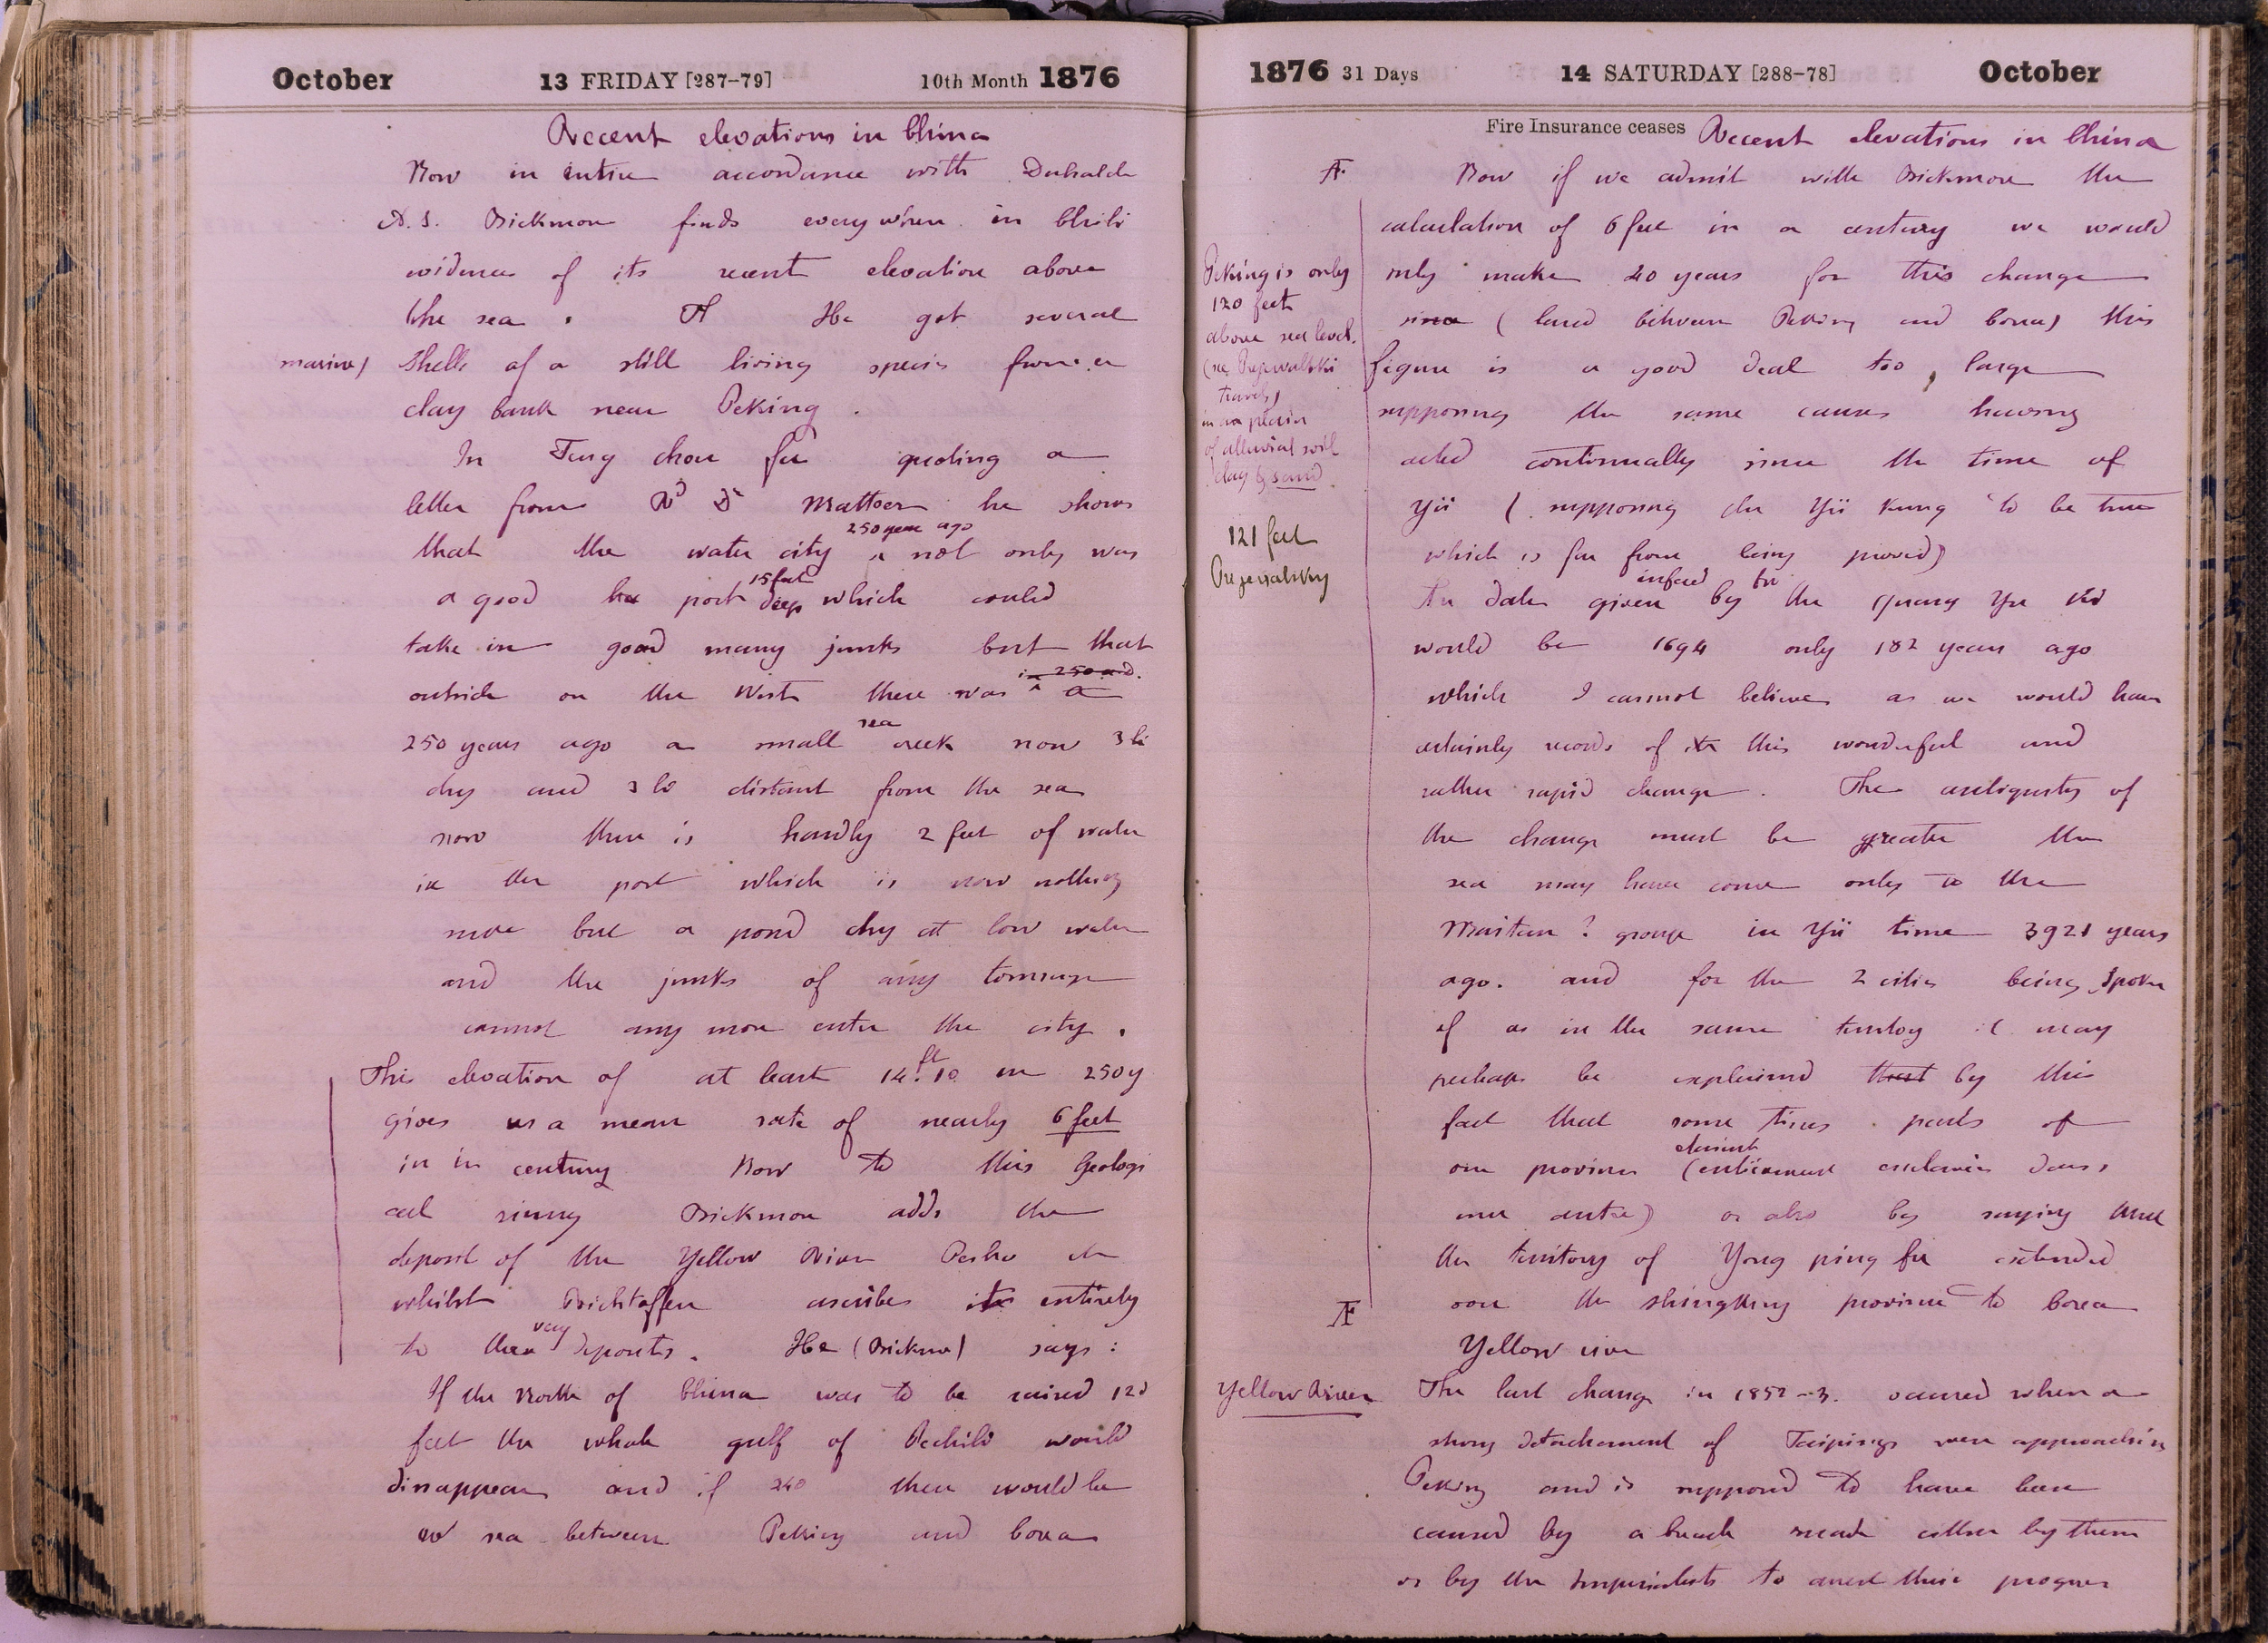 October 13 FRIDAY [287-79] 10th Month 1876
Recent elevations in China
Now in entire accordance with Duhalde
A. S. Bickmore finds everywhere in Chili
evidences of its recent elevation above
the sea. A He got several
marine) shells of a still living species from a
clay bank near Peking.
In Tung chou fu quoting a
letter from Rd Dr Matteer he shows
250 years ago
that the water city not only was
15 feet
a good port deep which could
take in good many junks but that
in 250 a d.
outside on the West there was a
sea
250 years ago a small creek now 3 li
dry and 3 li distant from the sea
now there is hardly 2 feet of water
in the port which is now nothing
more but a pond dry at low water
and the junks of any tonnage
cannot any more enter the city.
This elevation of at least 14 ft. 10 in 250 y
gives us a mean rate of nearly 6 feet
in in century Now to this Geologi
cal rising Bickmore adds the
deposit of the Yellow River Peiho etc
whilst Richtoffen ascribes it entirely
very
to these deposits. He (Bickmore) says:
If the North of China was to be raised 120
feet the whole gulf of Pechili would
disappear and if 240 there would be
no sea between Peking and Corea
1876 31 Days 14 SATURDAY [288-78] October
Fire Insurance ceases Recent elevations in China
Now if we admit with Bickmore the
calculation of 6 feet in a century we would
only make 20 years for this change
since (land between Peking and Corea) this
figure is a good deal too large
supposing the same causes having
acted continually since the time of
Yü (supposing the Yü Kung to be true
which is far from being proved)
infered
The date given by the Yu
would be 1694 only 182 years ago
which I cannot believe as we would have
certainly records of this wonderful and
rather rapid change. The antiquity of
the change must be greater the
sea may have come only to the
? group in Yü time 3921 years
ago. and for the 2 cities being spoken
of as in the same it may
perhaps be explained that by this
fact that some times parts of
one province (
une autre) or also by saying that
the territory of Yong ping fu extended
over the Shingking province to Corea
Yellow river
Peking is only
120 feet
above sea level.
(see Prejevalski
travels)
in a plain
of alluvial soil
clay & sand
121 feet
Prejevalsky
Yellow River
The last change in 1852-3. occured when a
strong detachement of Taipings were approaching
Peking and is supposed to have been
caused by a breach made either by them
or by the Imperialists to arrest their progress